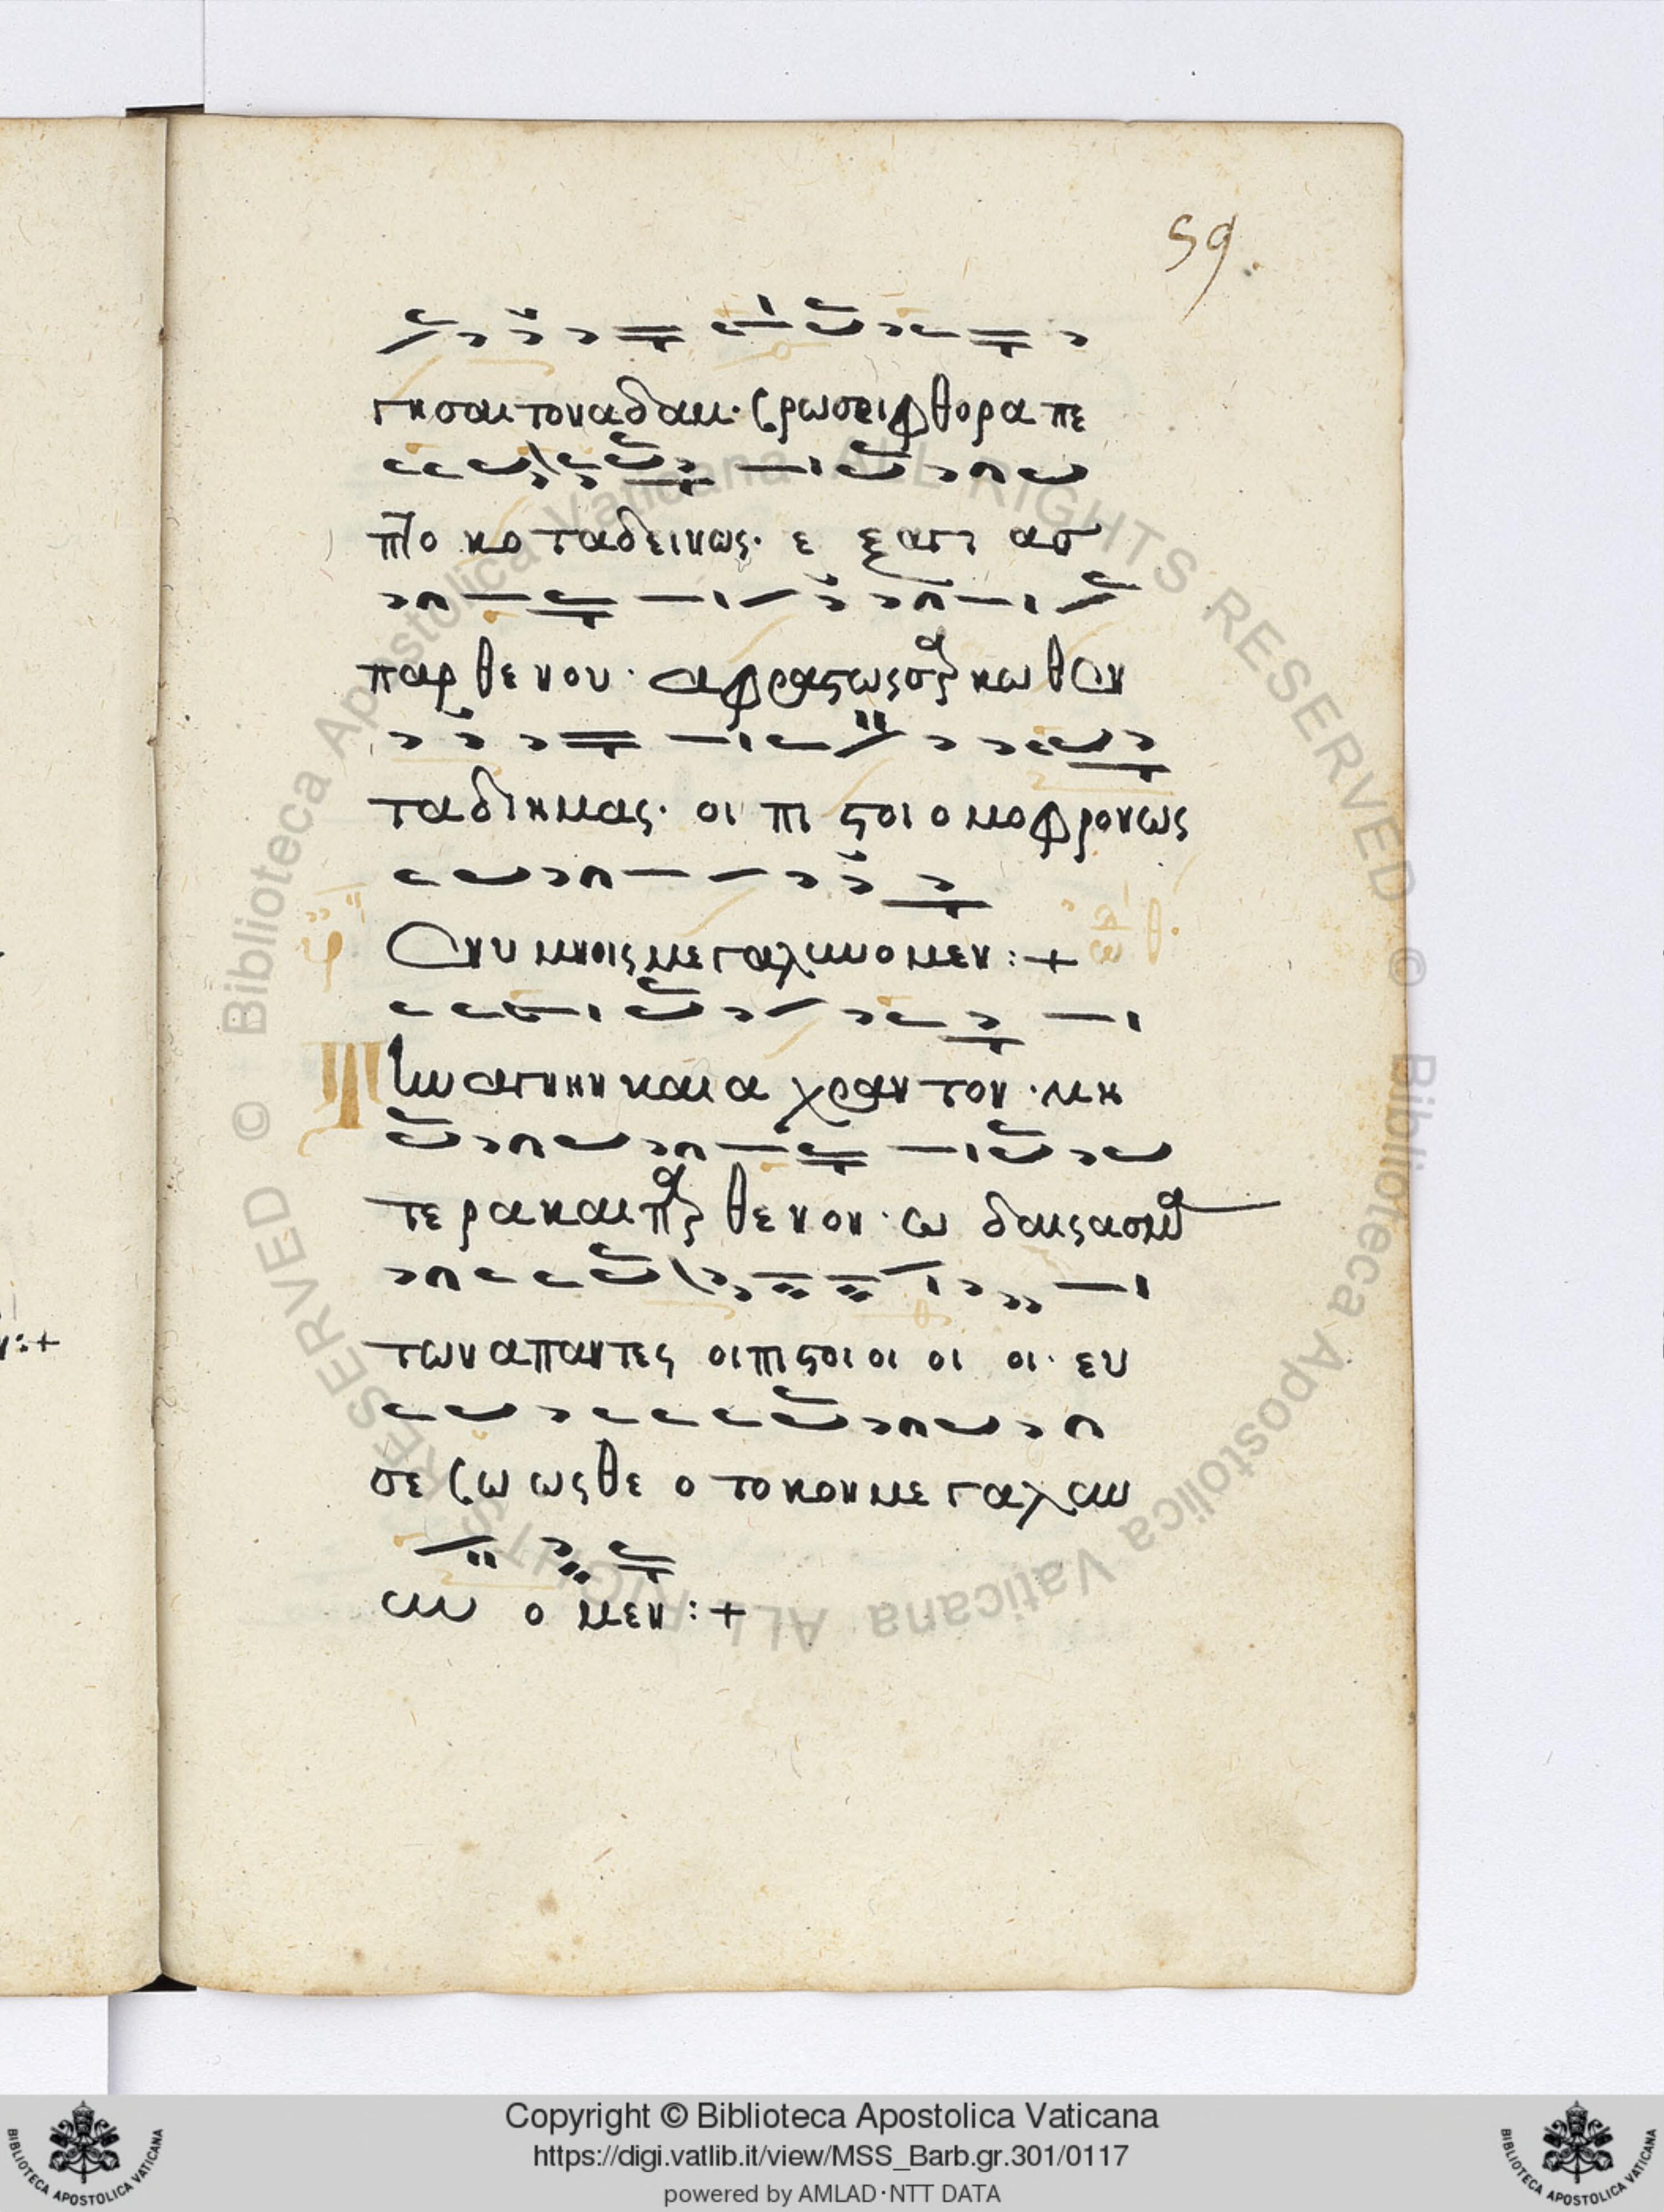 59.
γησαι τον αδαμ· βρωσει φθορα πε
πτο κο τα δεινως· ε ξ αγι ασ
παρ θε νου· αφραστως σαρκωθεν
τα δι ημας· οι πι στοι ομοφρονως
εν υμνοις μεγαλυνομεν:+
Την αγνην και α χραν τον· μη
τε ρα και παρ θε νον· ω δαις ασμα
των απαντες οι πιστοι οι οι οι· ευ
σε βω ως θε ο το κον με γα λυ
υ ο μεν:+
Copyright © Biblioteca Apostolica Vaticana
https://digi.vatlib.it/view/MSS_Barb.gr.301/0117
powered by AMLAD·NTT DATA
© Biblioteca Apostolica Vaticana ALL RIGHTS RESERVED © Biblioteca Apostolica Vaticana ALL RIGHTS RESERVED
BIBLIOTECA APOSTOLICA VATICANA
BIBLIOTECA APOSTOLICA VATICANA